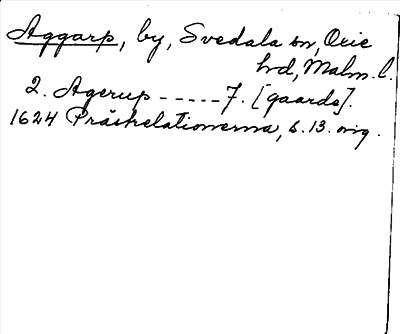 Aggarp, by, Svedala sn, Oxie
hrd, Malm. l.
2. Agerup -----7. [gaarde].
1624 Prästrelationerna, s. 13. orig.